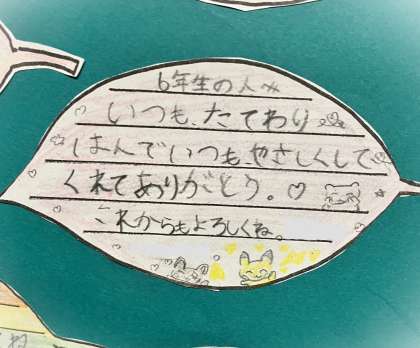 6年生の人へ
いつも、たてわり
はんでいつも、やさしくして
くれてありがとう。♡
これからもよろしくね。